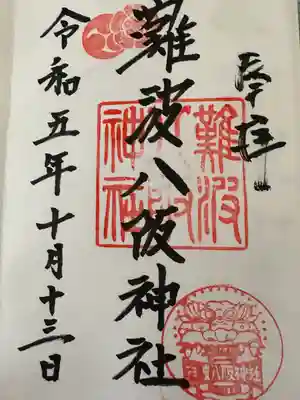 奉拝
難波八阪神社
難波
八阪
神社
令和五年十月十三日
八阪神社